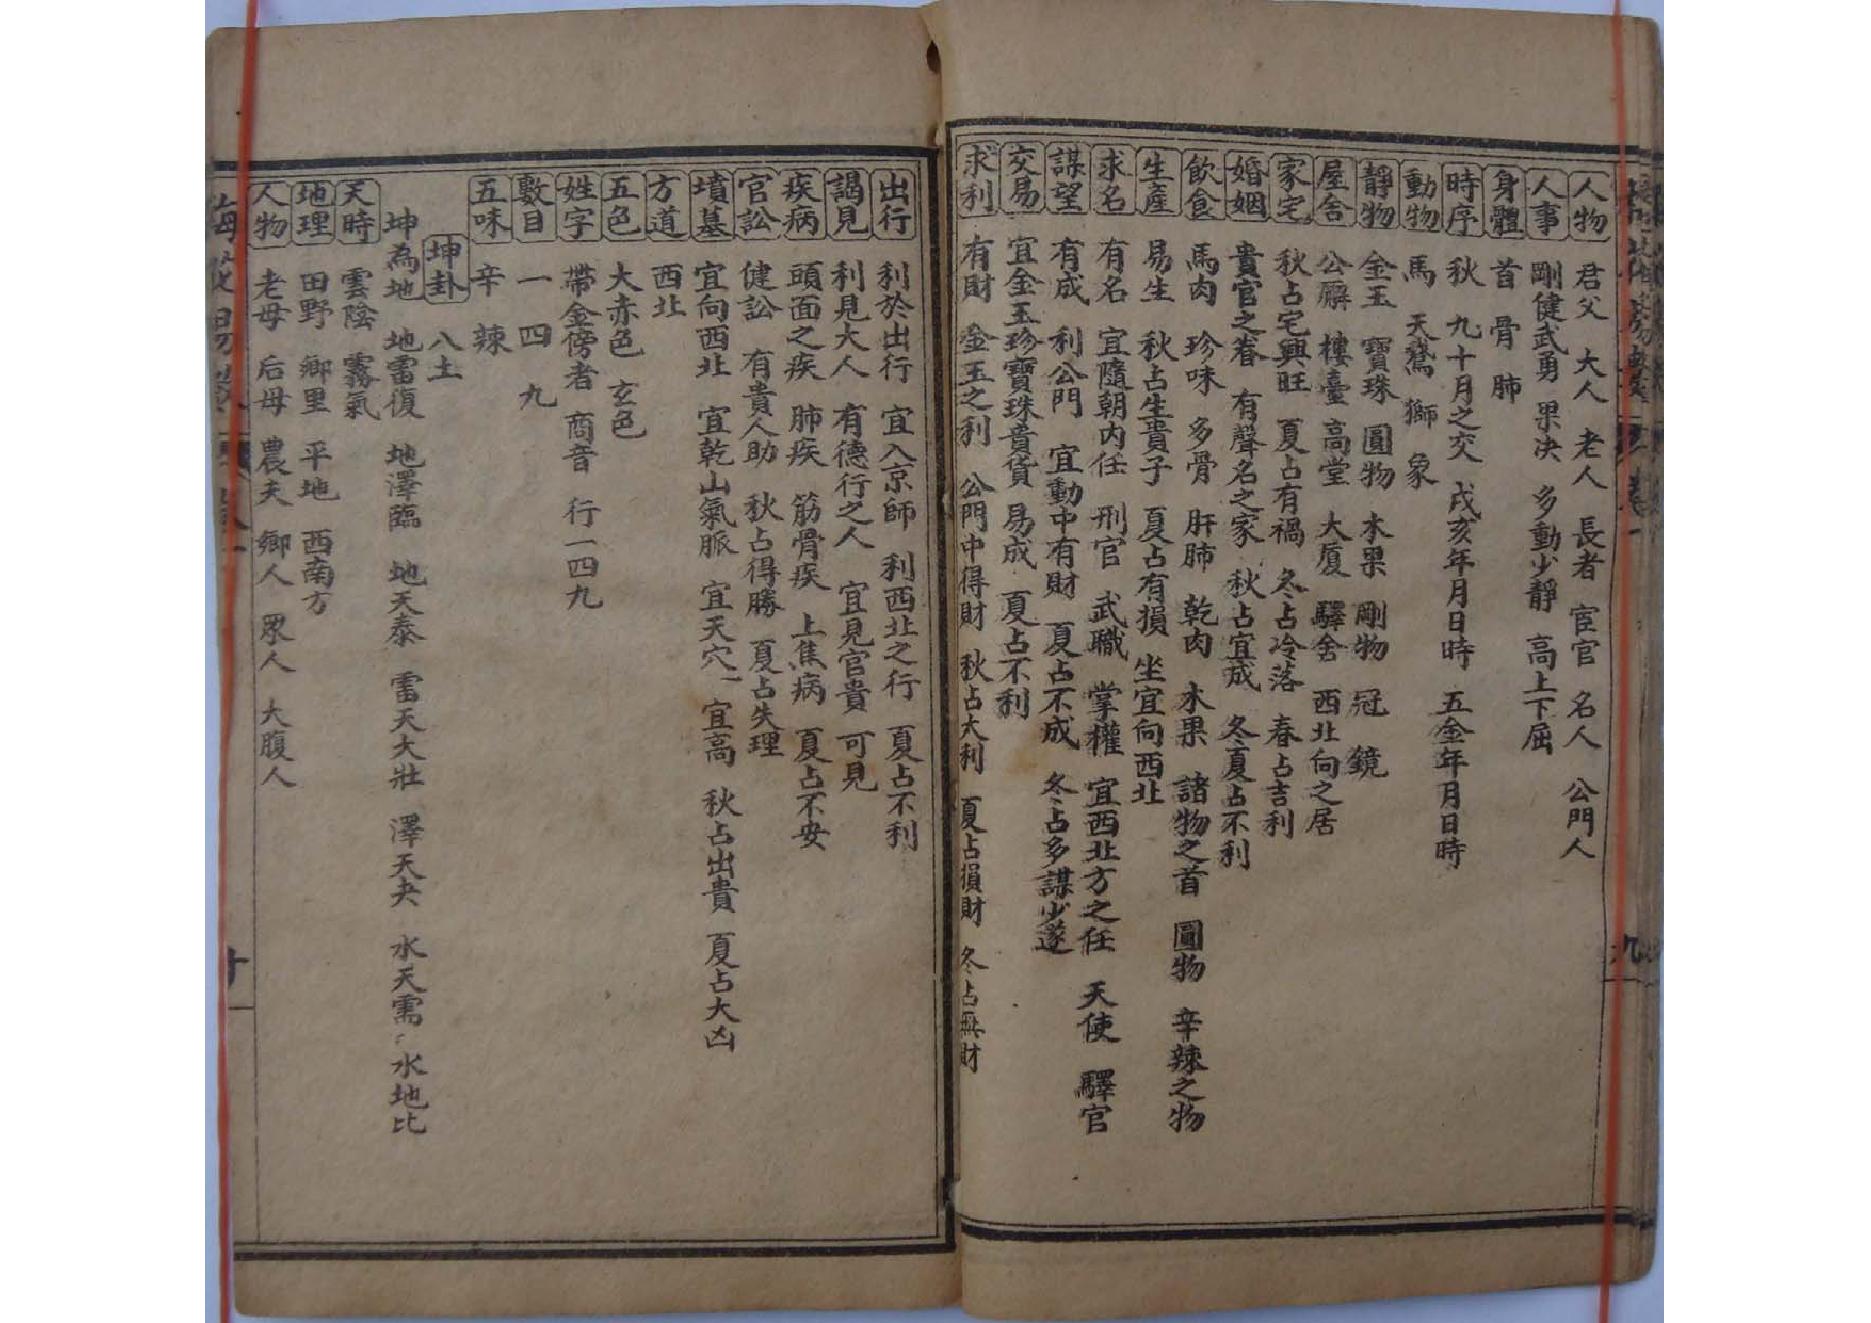 人物 君父 大人 老人 長者 宦官 名人 公門人
人事 剛健武勇 果决 多動少靜 高上下屈
身體 首 骨 肺
時序 秋 九十月之交 戌亥年月日時 五金年月日時
動物 馬 天鵞 獅 象
靜物 金玉 寶珠 圓物 木果 剛物 冠 鏡
屋舍 公廨 樓臺 高堂 大厦 驛舍 西北向之居
家宅 秋占宅興旺 夏占有禍 冬占冷落 春占吉利
婚姻 貴官之眷 有聲名之家 秋占宜成 冬夏占不利
飲食 馬肉 珍味 多骨 肝肺 乾肉 木果 諸物之首 圓物 辛辣之物
生產 易生 秋占生貴子 夏占有損 坐宜向西北
求名 有名 宜隨朝内任 刑官 武職 掌權 宜西北方之任 天使 驛官
謀望 有成 利公門 宜動中有財 夏占不成 冬占多謀少遂
交易 宜金玉珍寶珠貴貨 易成 夏占不利
求利 有財 金玉之利 公門中得財 秋占大利 夏占損財 冬占無財
出行 利於出行 宜入京師 利西北之行 夏占不利
謁見 利見大人 有德行之人 宜見官貴 可見
疾病 頭面之疾 肺疾 筋骨疾 上焦病 夏占不安
官訟 健訟 有貴人助 秋占得勝 夏占失理
墳墓 宜向西北 宜乾山氣脈 宜天穴 宜高 秋占出貴 夏占大凶
方道 西北
五色 大赤色 玄色
姓字 帶金傍者 商音 行一四九
數目 一 四 九
五味 辛 辣
坤卦 八土
坤為地 地雷復 地澤臨 地天泰 雷天大壯 澤天夬 水天需 水地比
天時 雲陰 霧氣
地理 田野 鄉里 平地 西南方
人物 老母 后母 農夫 鄉人 眾人 大腹人